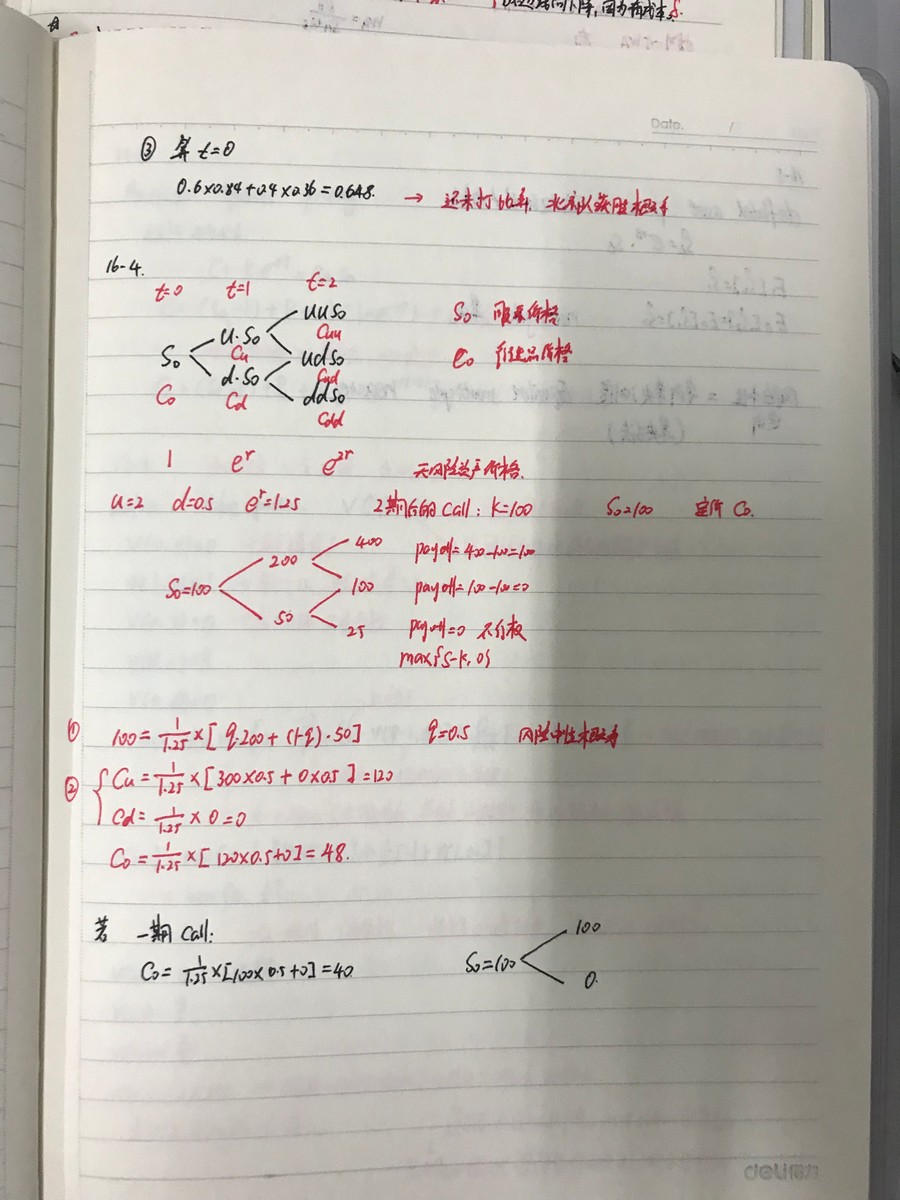 Date. /
③ 算 t=0
0.6×0.84+0.4×0.36=0.648. → 还未打比赛, 北京队获胜概率
16-4.
t=0 t=1 t=2
S₀ u·S₀ uuS₀
d·S₀ udS₀
ddS₀
C₀ Cu Cuu
Cd Cud
Cdd
S₀ 股票价格
C₀ 衍生品价格
1 eʳ e²ʳ 无风险资产价格.
u=2 d=0.5 eʳ=1.25 2期后的 Call: K=100 S₀=100 定价 C₀.
S₀=100 200 400 payoff=400-100=100
50 100 payoff=100-100=0
25 payoff=0 不行权
max{S-K, 0}
① 100= 1/1.25 ×[ q·200 + (1-q)·50] q=0.5 风险中性概率
② Cu= 1/1.25 ×[300×0.5 + 0×0.5 ]=120
Cd= 1/1.25 × 0=0
C₀= 1/1.25 ×[ 120×0.5+0]=48.
若 一期 Call:
C₀= 1/1.25 ×[100×0.5+0]=40 S₀=100 100
0.
deli